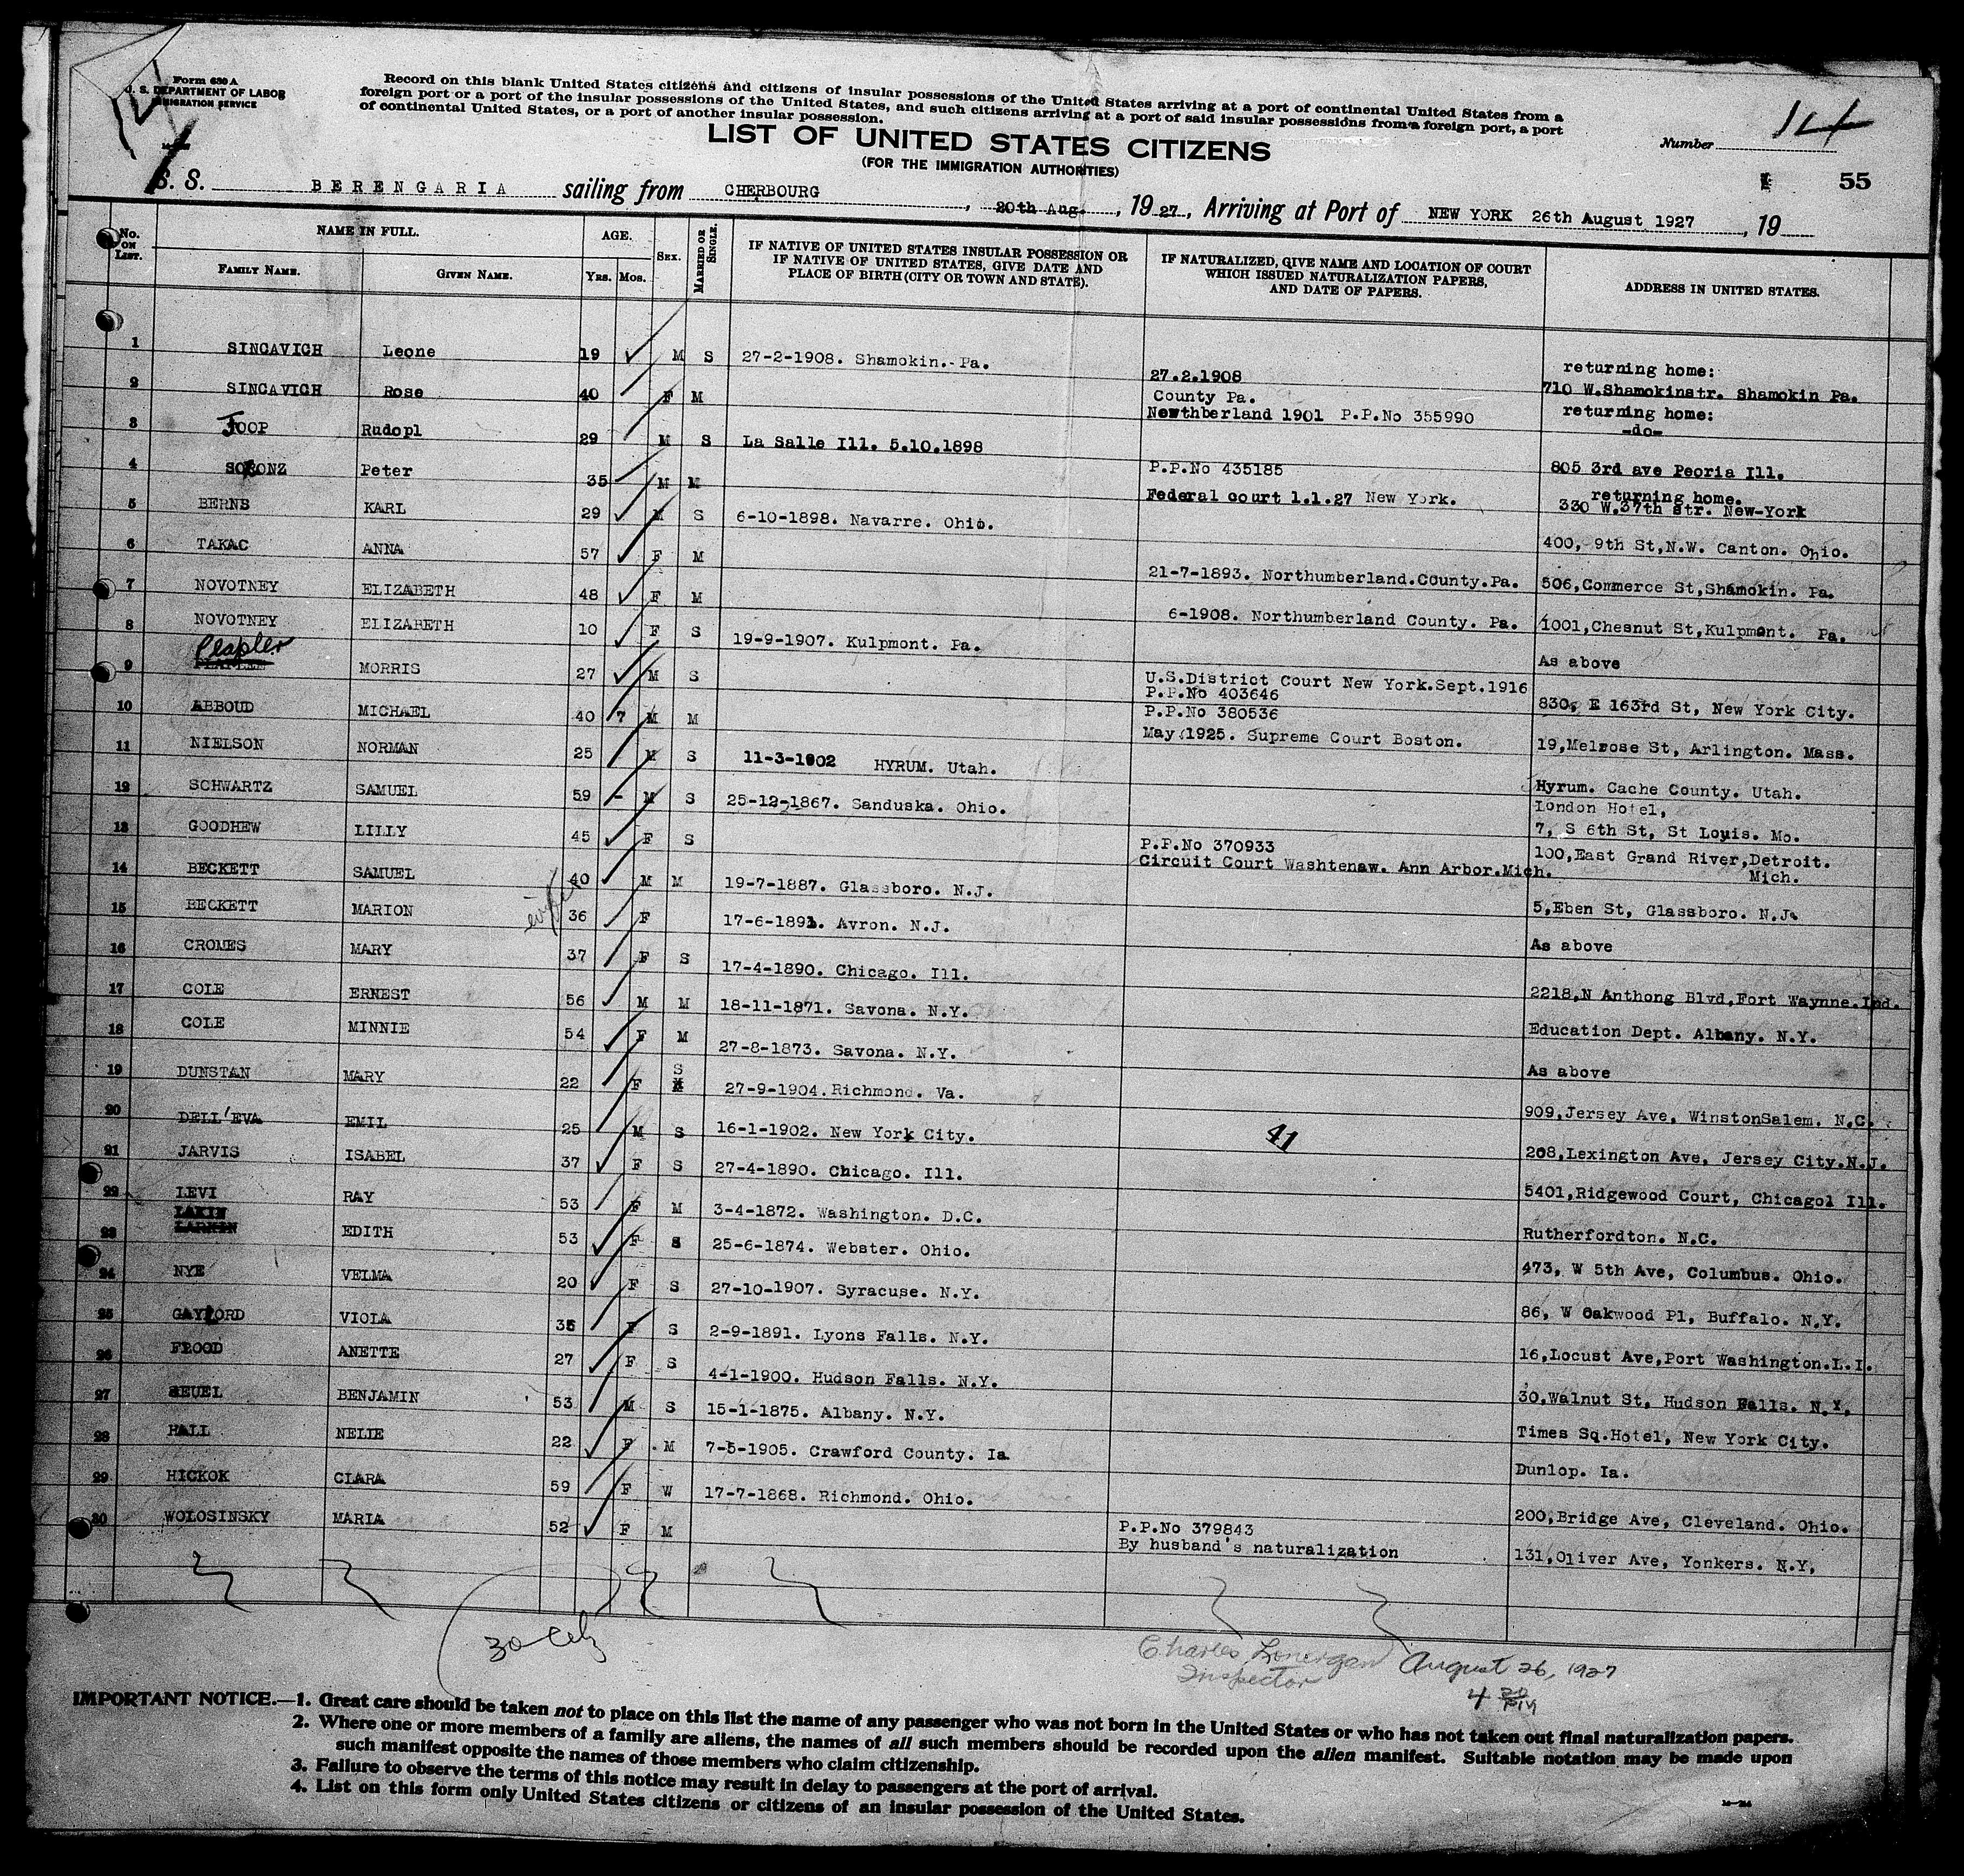 Form 630 A
U. S. DEPARTMENT OF LABOR
IMMIGRATION SERVICE
Record on this blank United States citizens and citizens of insular possessions of the United States arriving at a port of continental United States from a
foreign port or a port of the insular possessions of the United States, and such citizens arriving at a port of said insular possessions from a foreign port, a port
of continental United States, or a port of another insular possession.
LIST OF UNITED STATES CITIZENS
(FOR THE IMMIGRATION AUTHORITIES)
Number
55
S. S. BERENGARIA sailing from CHERBOURG, 20th Aug., 1927, Arriving at Port of NEW YORK 26th August 1927, 19
No. ON LIST. NAME IN FULL. FAMILY NAME. GIVEN NAME. AGE. YRS. MOS. SEX. MARRIED OR SINGLE. IF NATIVE OF UNITED STATES INSULAR POSSESSION OR IF NATIVE OF UNITED STATES, GIVE DATE AND PLACE OF BIRTH (CITY OR TOWN AND STATE). IF NATURALIZED, GIVE NAME AND LOCATION OF COURT WHICH ISSUED NATURALIZATION PAPERS, AND DATE OF PAPERS. ADDRESS IN UNITED STATES.
1 SINCAVICH Leone 19 M S 27-2-1908. Shamokin. Pa. returning home:
27.2.1908 710 W.Shamokinstr. Shamokin Pa.
2 SINCAVICH Rose 40 F M County Pa. returning home:
Newthberland 1901 P.P.No 355990 -do-
3 JOOP Rudopl 29 M S La Salle Ill. 5.10.1898
P.P.No 435185 805 3rd ave Peoria Ill.
4 Peter 35 M M Federal court 1.1.27 New York. returning home.
330 W.37th str. New-York
5 BERNS KARL 29 M S 6-10-1898. Navarre. Ohio. 400, 9th St,N.W. Canton. Ohio.
6 TAKAC ANNA 57 F M 21-7-1893. Northumberland.County.Pa. 506,Commerce St,Shamokin. Pa.
7 NOVOTNEY ELIZABETH 48 F M 6-1908. Northumberland County. Pa. 1001,Chesnut St,Kulpmont. Pa.
8 NOVOTNEY ELIZABETH 10 F S 19-9-1907. Kulpmont. Pa. As above
Plapler
9 MORRIS 27 M S U.S.District Court New York.Sept.1916
P.P.No 403646 830, E 163rd St, New York City.
10 ABBOUD MICHAEL 40 7 M M P.P.No 380536
May 1925. Supreme Court Boston. 19,Melrose St, Arlington. Mass.
11 NIELSON NORMAN 25 M S 11-3-1902 HYRUM. Utah. Hyrum. Cache County. Utah.
12 SCHWARTZ SAMUEL 59 - M S 25-12-1867. Sanduska. Ohio. London Hotel,
7, S 6th St, St Louis. Mo.
13 GOODHEW LILLY 45 F S P.P.No 370933
Circuit Court Washtenaw. Ann Arbor.Mich. 100,East Grand River,Detroit.
Mich.
14 BECKETT SAMUEL 40 M M 19-7-1887. Glassboro. N.J. 5,Eben St, Glassboro. N.J.
15 BECKETT MARION wife 36 F 17-6-1891. Avron. N.J. As above
16 CROMES MARY 37 F S 17-4-1890. Chicago. Ill. 2218,N Anthong Blvd,Fort Waynne.Ind.
17 COLE ERNEST 56 M M 18-11-1871. Savona. N.Y. Education Dept. Albany. N.Y.
18 COLE MINNIE 54 F M 27-8-1873. Savona. N.Y. As above
19 DUNSTAN MARY 22 F S 27-9-1904.Richmond. Va. 909,Jersey Ave, WinstonSalem. N.C.
20 DELL'EVA EMIL 25 M S 16-1-1902. New York City. 41 208,Lexington Ave, Jersey City.N.J.
21 JARVIS ISABEL 37 F S 27-4-1890. Chicago. Ill. 5401,Ridgewood Court, Chicago. Ill.
22 LEVI RAY 53 F M 3-4-1872. Washington. D.C. Rutherfordton. N.C.
LAKIN
LARKIN
23 EDITH 53 F S 25-6-1874. Webster. Ohio. 473, W 5th Ave, Columbus. Ohio.
24 NYE VELMA 20 F S 27-10-1907. Syracuse. N.Y. 86, W Oakwood Pl, Buffalo. N.Y.
25 GAYLORD VIOLA 35 F S 2-9-1891. Lyons Falls. N.Y. 16,Locust Ave,Port Washington.L.I.
26 FROOD ANETTE 27 F S 4-1-1900. Hudson Falls. N.Y. 30,Walnut St, Hudson Falls. N.Y.
27 BEUEL BENJAMIN 53 M S 15-1-1875. Albany. N.Y. Times Sq.Hotel, New York City.
28 HALL NELIE 22 F M 7-5-1905. Crawford County. Ia Dunlop. Ia.
29 HICKOK CLARA 59 F W 17-7-1868. Richmond. Ohio. 200,Bridge Ave, Cleveland. Ohio.
30 WOLOSINSKY MARIA 52 F M P.P.No 379843
By husband's naturalization 131,Oliver Ave, Yonkers. N.Y.
30
Charles Inspector August 26, 1927
IMPORTANT NOTICE.—1. Great care should be taken not to place on this list the name of any passenger who was not born in the United States or who has not taken out final naturalization papers.
2. Where one or more members of a family are aliens, the names of all such members should be recorded upon the alien manifest. Suitable notation may be made upon
such manifest opposite the names of those members who claim citizenship.
3. Failure to observe the terms of this notice may result in delay to passengers at the port of arrival.
4. List on this form only United States citizens or citizens of an insular possession of the United States.